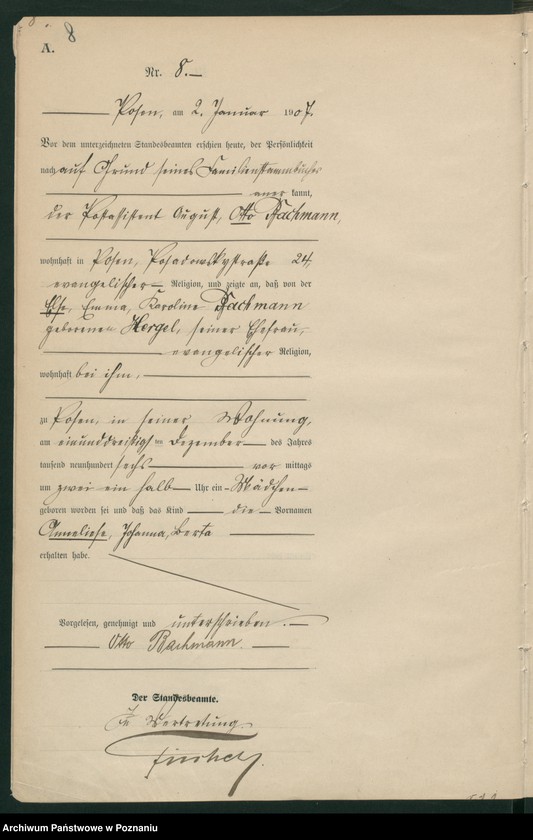 8
A.
Nr. 8.
Posen, am 2. Januar 1907.
Vor dem unterzeichneten Standesbeamten erschien heute, der Persönlichkeit
nach auf Grund seines Familienstammbuches
anerkannt,
der Postassistent August, Otto Bachmann,
wohnhaft in Posen, Posadowskystraße 24,
evangelischer Religion, und zeigte an, daß von der
Else, Emma, Karoline Bachmann
geborenen Hergel, seiner Ehefrau,
evangelischer Religion,
wohnhaft bei ihm,
zu Posen, in seiner Wohnung,
am einunddreißigsten Dezember des Jahres
tausend neunhundert sechs vormittags
um zwei ein halb Uhr ein Mädchen
geboren worden sei und daß das Kind die Vornamen
Anneliese, Johanna, Berta
erhalten habe.
Vorgelesen, genehmigt und unterschrieben.
Otto Bachmann
Der Standesbeamte.
In Vertretung
Archiwum Państwowe w Poznaniu